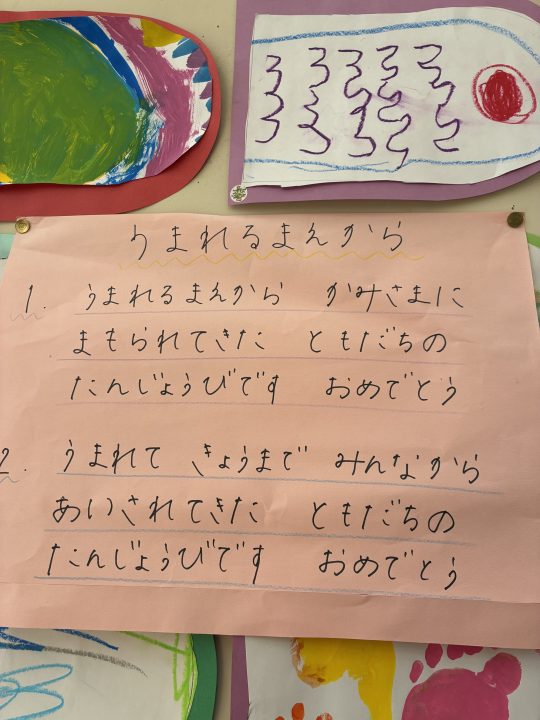 うまれるまえから
1. うまれるまえから かみさまに
まもられてきた ともだちの
たんじょうびです おめでとう
2. うまれて きょうまで みんなから
あいされてきた ともだちの
たんじょうびです おめでとう